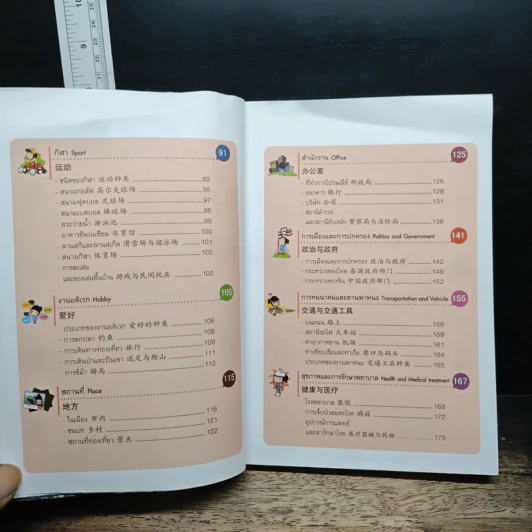 กีฬา Sport 91
运动
- ชนิดของกีฬา 运动种类 92
- สนามกอล์ฟ 高尔夫球场 95
- สนามฟุตบอล 足球场 97
- สนามเบสบอล 棒球场 98
- สระว่ายน้ำ 游泳池 99
- อาคารยิมเนเซียม 体育馆 100
- ลานสกีและลานสเก็ต 滑雪场与溜冰场 101
- สนามกีฬา 体育场 102
- การละเล่น
และของเล่นพื้นบ้าน 游戏与民间玩具 102
งานอดิเรก Hobby 105
爱好
- ประเภทของงานอดิเรก 爱好的种类 106
- การตกปลา 钓鱼 108
- การเดินทางท่องเที่ยว 旅行 109
- การเดินป่าและปีนเขา 远足与爬山 111
- การขี่ม้า 骑马 112
สถานที่ Place 115
地方
- ในเมือง 市内 116
- ชนบท 乡村 121
- สถานที่ท่องเที่ยว 景点 122
สำนักงาน Office 125
办公室
- ที่ทำการไปรษณีย์ 邮政局 126
- ธนาคาร 银行 128
- บริษัท 公司 131
- สถานีตำรวจ
และสถานีดับเพลิง 警察局与消防局 138
การเมืองและการปกครอง Politics and Government 141
政治与政府
- การเมืองและการปกครอง 政治与政府 142
- กระทรวงของไทย 泰国政府部门 149
- กระทรวงของจีน 中国政府部门 152
การคมนาคมและยานพาหนะ Transportation and Vehicle 155
交通与交通工具
- บนถนน 路上 156
- สถานีรถไฟ 火车站 159
- ท่าอากาศยาน 机场 161
- ท่าเทียบเรือและท่าเรือ 港口与码头 164
- ประเภทของยานพาหนะ 交通工具种类 165
สุขภาพและการรักษาพยาบาล Health and Medical treatment 167
健康与医疗
- โรงพยาบาล 医院 168
- การเจ็บป่วยและโรค 病症 172
- อุปกรณ์การแพทย์
และยารักษาโรค 医疗器械与药物 175